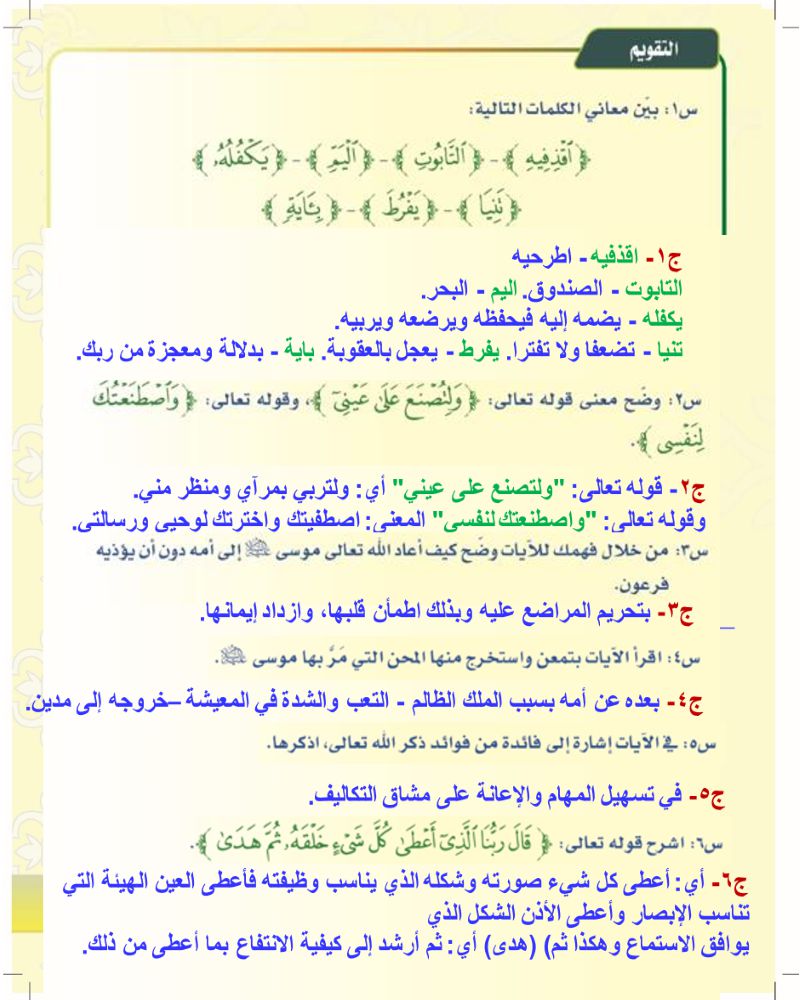 التقويم
س١: بيّن معاني الكلمات التالية:
﴿ ٱقْذِفِيهِ ﴾ - ﴿ ٱلتَّابُوتِ ﴾ - ﴿ ٱلْيَمِّ ﴾ - ﴿ يَكْفُلُهُۥ ﴾
﴿ تَنِيَا ﴾ - ﴿ يَفْرُطَ ﴾ - ﴿ بِـَٔايَةٍ ﴾
ج١- اقذفيه - اطرحيه
التابوت - الصندوق. اليم - البحر.
يكفله - يضمه إليه فيحفظه ويرضعه ويربيه.
تنيا - تضعفا ولا تفترا. يفرط - يعجل بالعقوبة. باية - بدلالة ومعجزة من ربك.
س٢: وضّح معنى قوله تعالى: ﴿ وَلِتُصْنَعَ عَلَىٰ عَيْنِىٓ ﴾، وقوله تعالى: ﴿ وَٱصْطَنَعْتُكَ
لِنَفْسِى ﴾.
ج٢- قوله تعالى: "ولتصنع على عيني" أي: ولتربي بمرآي ومنظر مني.
وقوله تعالى: "واصطنعتك لنفسى" المعنى: اصطفيتك واخترتك لوحيى ورسالتى.
س٣: من خلال فهمك للآيات وضّح كيف أعاد الله تعالى موسى ﷺ إلى أمه دون أن يؤذيه
فرعون.
ج٣- بتحريم المراضع عليه وبذلك اطمأن قلبها، وازداد إيمانها.
س٤: اقرأ الآيات بتمعن واستخرج منها المحن التي مَرَّ بها موسى ﷺ.
ج٤- بعده عن أمه بسبب الملك الظالم - التعب والشدة في المعيشة –خروجه إلى مدين.
س٥: في الآيات إشارة إلى فائدة من فوائد ذكر الله تعالى، اذكرها.
ج٥- في تسهيل المهام والإعانة على مشاق التكاليف.
س٦: اشرح قوله تعالى: ﴿ قَالَ رَبُّنَا ٱلَّذِىٓ أَعْطَىٰ كُلَّ شَىْءٍ خَلْقَهُۥ ثُمَّ هَدَىٰ ﴾.
ج٦- أي: أعطى كل شيء صورته وشكله الذي يناسب وظيفته فأعطى العين الهيئة التي
تناسب الإبصار وأعطى الأذن الشكل الذي
يوافق الاستماع وهكذا ثم) (هدى) أي: ثم أرشد إلى كيفية الانتفاع بما أعطى من ذلك.